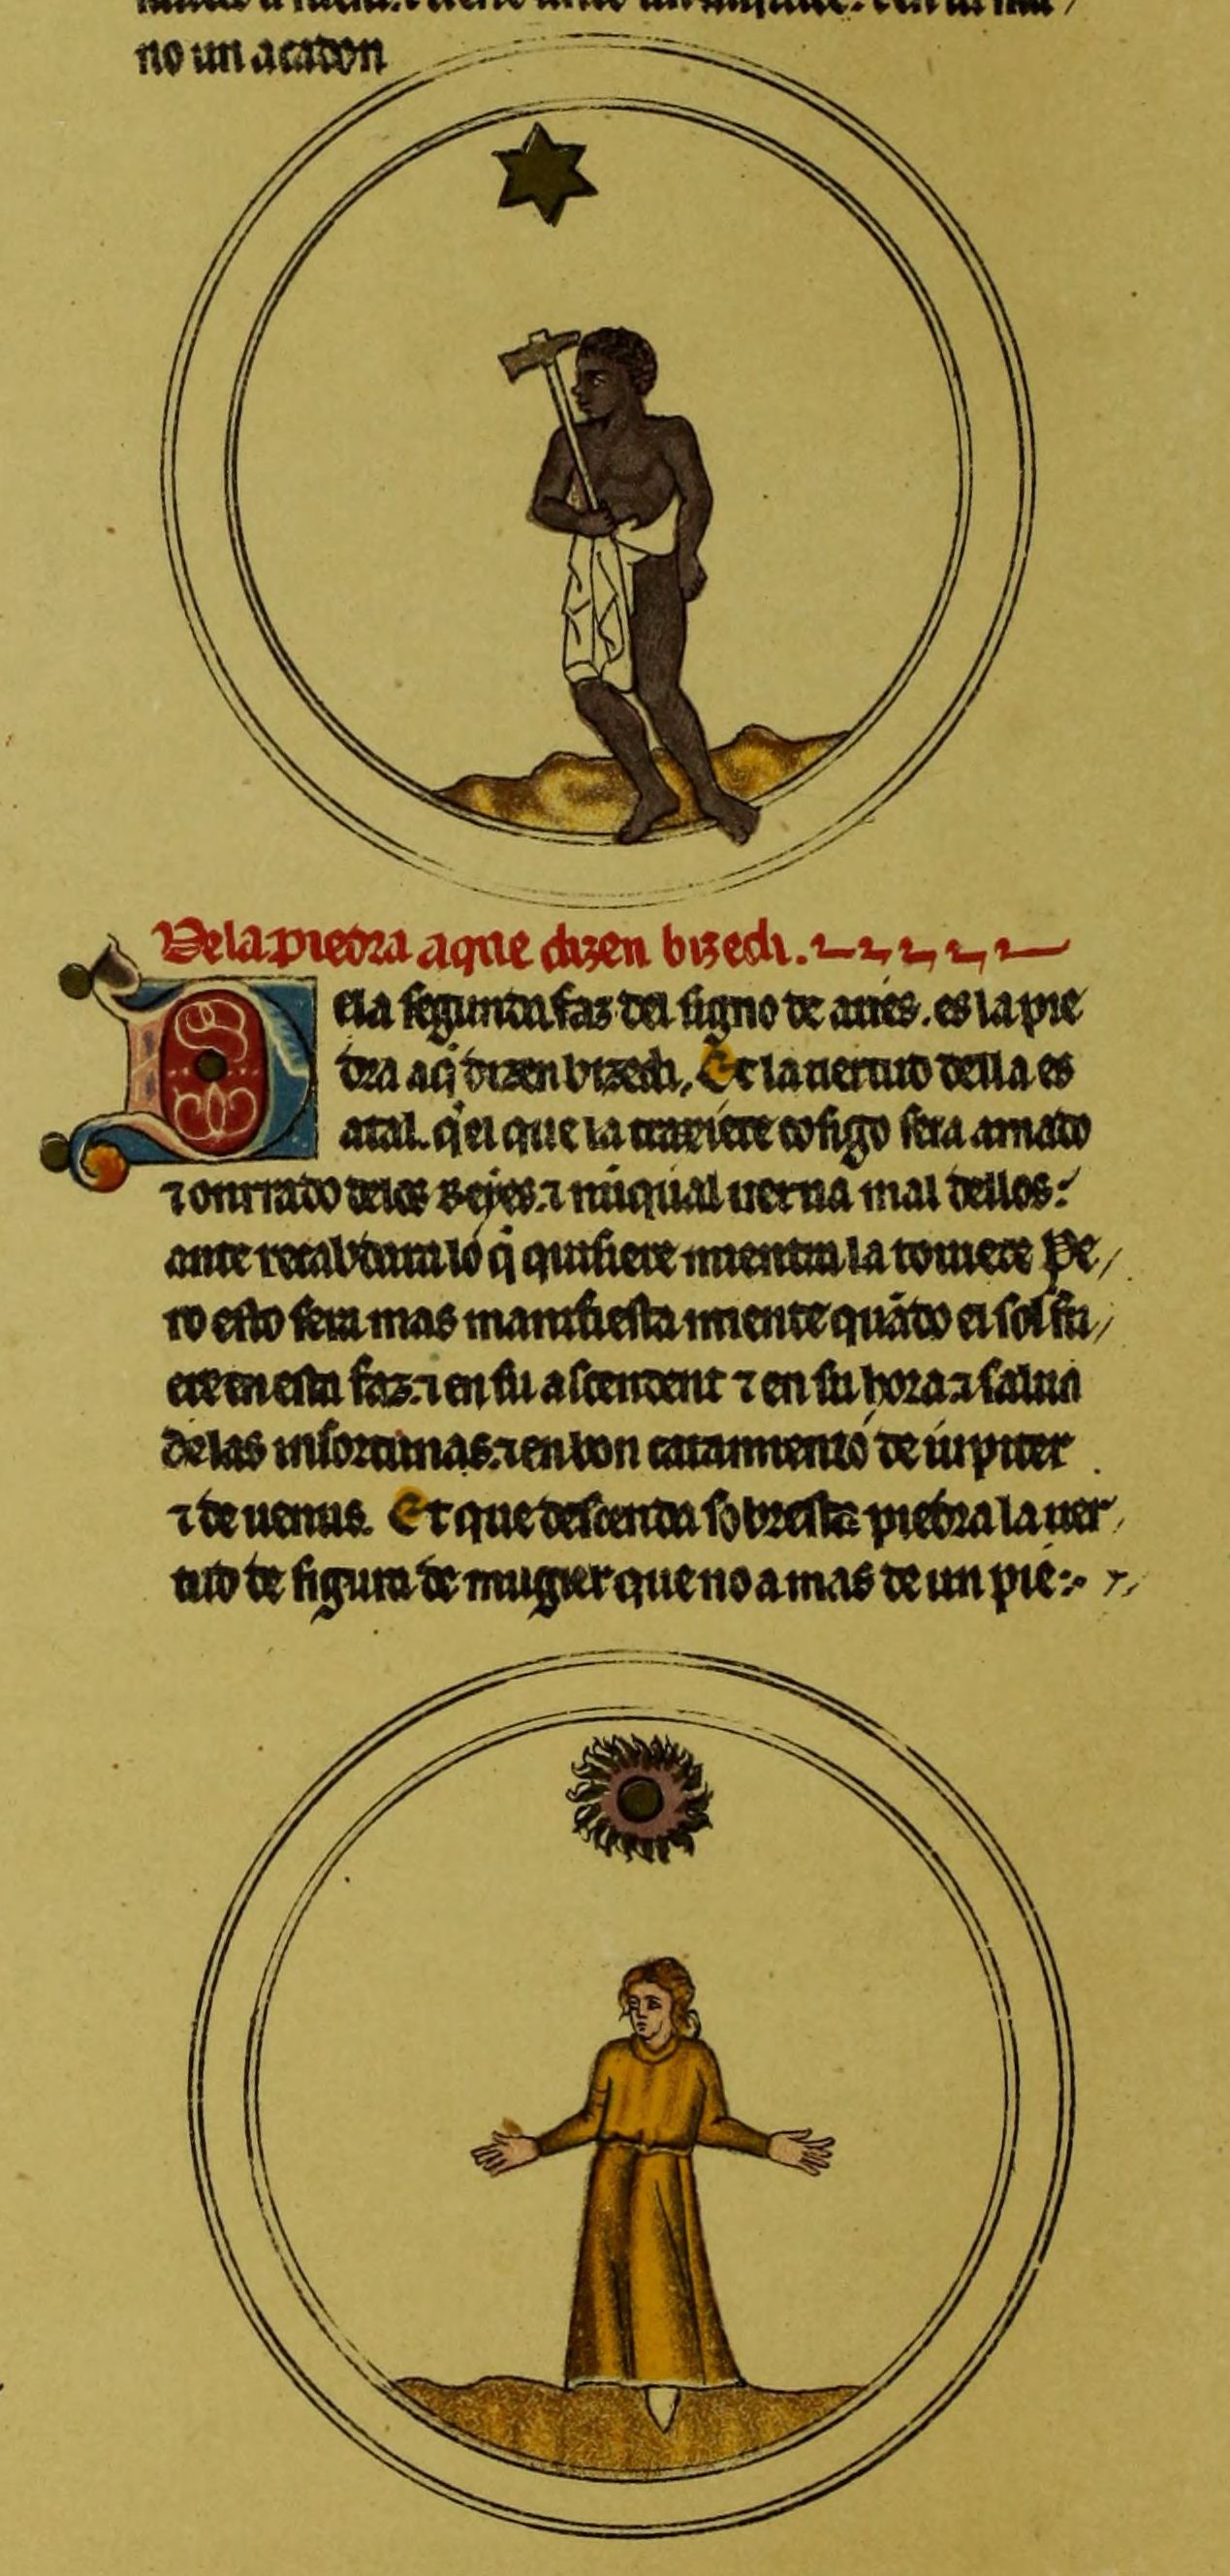 no un acadon
De la piedra a que dizen bizedi.
De la segunda faz del signo de aries. es la pie
dra a q̃ dizen bizedi. Et la uertud della es
atal. q̃ el que la traxiere cõsigo sera amado
⁊ onrrado delos Reyes. ⁊ nũqual uerna mal dellos:
ante recabdara lo q̃ quisiere mientra la touiere Pe/
ro esto sera mas manifiesta miente quãdo el sol fu/
ere en esta faz. ⁊ en su ascendent ⁊ en su hora. ⁊ saluo
delas infortunas. ⁊ en bon catamiento de iupiter
⁊ de uenus. Et que descenda sobresta piedra la uer/
tud de figura de mugier que no a mas de un pie: